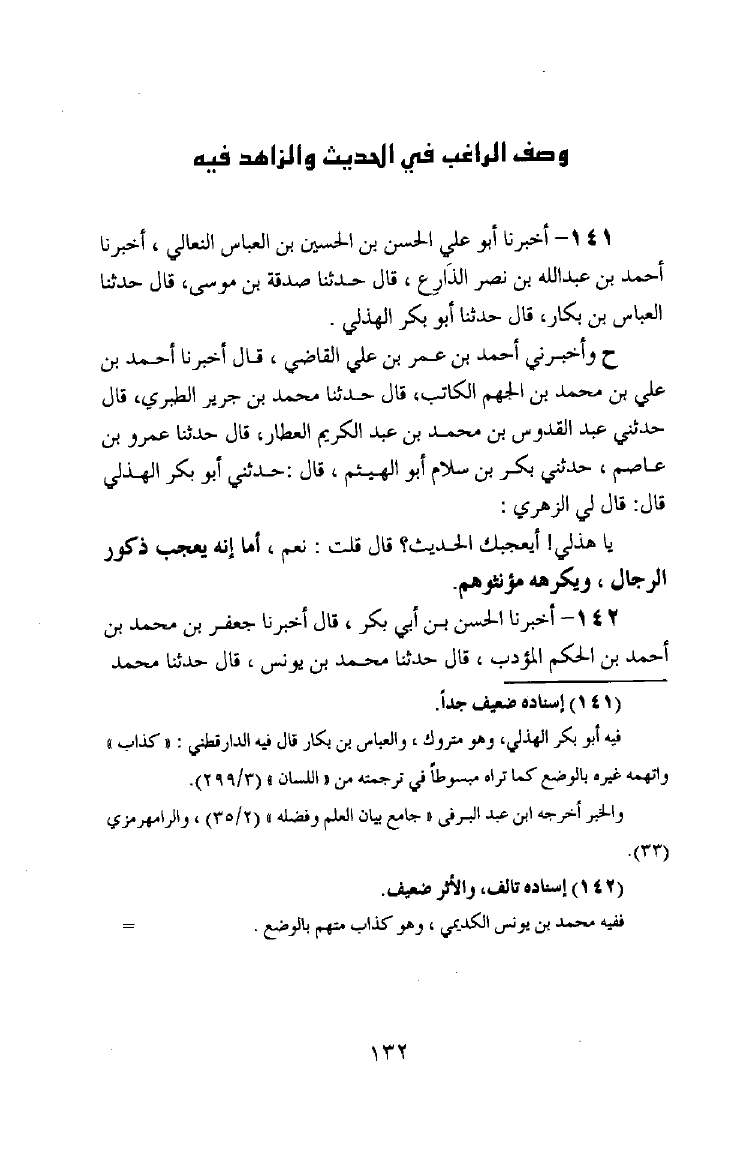 وصف الراغب في الحديث والزاهد فيه
١٤١- أخبرنا أبو علي الحسن بن الحسين بن العباس النعالي ، أخبرنا
أحمد بن عبدالله بن نصر الذَارع ، قال حدثنا صدقة بن موسى، قال حدثنا
العباس بن بكار، قال حدثنا أبو بكر الهذلي .
ح وأخبرني أحمد بن عمر بن علي القاضي ، قال أخبرنا أحمد بن
علي بن محمد بن الجهم الكاتب، قال حدثنا محمد بن جرير الطبري، قال
حدثني عبد القدوس بن محمد بن عبد الكريم العطار، قال حدثنا عمرو بن
عاصم ، حدثني بكر بن سلام أبو الهيثم ، قال :حدثني أبو بكر الهذلي
قال: قال لي الزهري :
يا هذلي! أيعجبك الحديث؟ قال قلت : نعم ، أما إنه يعجب ذكور
الرجال ، ويكرهه مؤنثوهم.
١٤٢- أخبرنا الحسن بن أبي بكر ، قال أخبرنا جعفر بن محمد بن
أحمد بن الحكم المؤدب ، قال حدثنا محمد بن يونس ، قال حدثنا محمد
(١٤١) إسناده ضعيف جداً.
فيه أبو بكر الهذلي، وهو متروك ، والعباس بن بكار قال فيه الدارقطني : « كذاب »
واتهمه غيره بالوضع كما تراه مبسوطاً في ترجمته من « اللسان » (٢٩٩/٣).
والخبر أخرجه ابن عبد البرفى « جامع بيان العلم وفضله » (٣٥/٢) ، والرامهرمزي
(٣٣).
(١٤٢) إسناده تالف، والأثر ضعيف.
ففيه محمد بن يونس الكديمي ، وهو كذاب متهم بالوضع . =
١٣٢